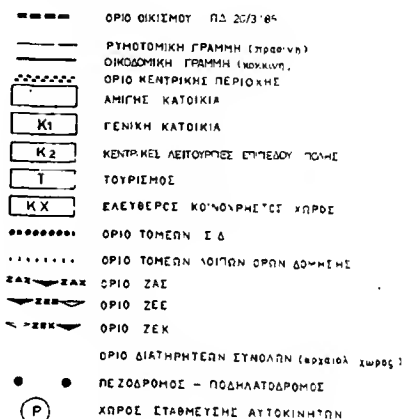 ΟΡΙΟ ΟΙΚΙΣΜΟΥ ΠΔ 20/3'85
ΡΥΜΟΤΟΜΙΚΗ ΓΡΑΜΜΗ (πρασινη)
ΟΙΚΟΔΟΜΙΚΗ ΓΡΑΜΜΗ (κοκκινη,
ΟΡΙΟ ΚΕΝΤΡΙΚΗΣ ΠΕΡΙΟΧΗΣ
ΑΜΙΓΗΣ ΚΑΤΟΙΚΙΑ
Κ1 ΓΕΝΙΚΗ ΚΑΤΟΙΚΙΑ
Κ2 ΚΕΝΤΡΙΚΕΣ ΛΕΙΤΟΥΡΓΙΕΣ ΕΠΙΠΕΔΟΥ ΠΟΛΗΣ
Τ ΤΟΥΡΙΣΜΟΣ
ΚΧ ΕΛΕΥΘΕΡΟΣ ΚΟΙΝΟΧΡΗΣΤΟΣ ΧΩΡΟΣ
ΟΡΙΟ ΤΟΜΕΩΝ Σ Δ
ΟΡΙΟ ΤΟΜΕΩΝ ΛΟΙΠΩΝ ΟΡΩΝ ΔΟΜΗΣΗΣ
ΖΑΣ ΖΑΣ ΟΡΙΟ ΖΑΣ
ΖΕΕ ΟΡΙΟ ΖΕΕ
ΖΕΚ ΟΡΙΟ ΖΕΚ
ΟΡΙΟ ΔΙΑΤΗΡΗΤΕΩΝ ΣΥΝΟΛΩΝ (αρχαιολ χωρος)
ΠΕΖΟΔΡΟΜΟΣ – ΠΟΔΗΛΑΤΟΔΡΟΜΟΣ
Ρ ΧΩΡΟΣ ΣΤΑΘΜΕΥΣΗΣ ΑΥΤΟΚΙΝΗΤΩΝ